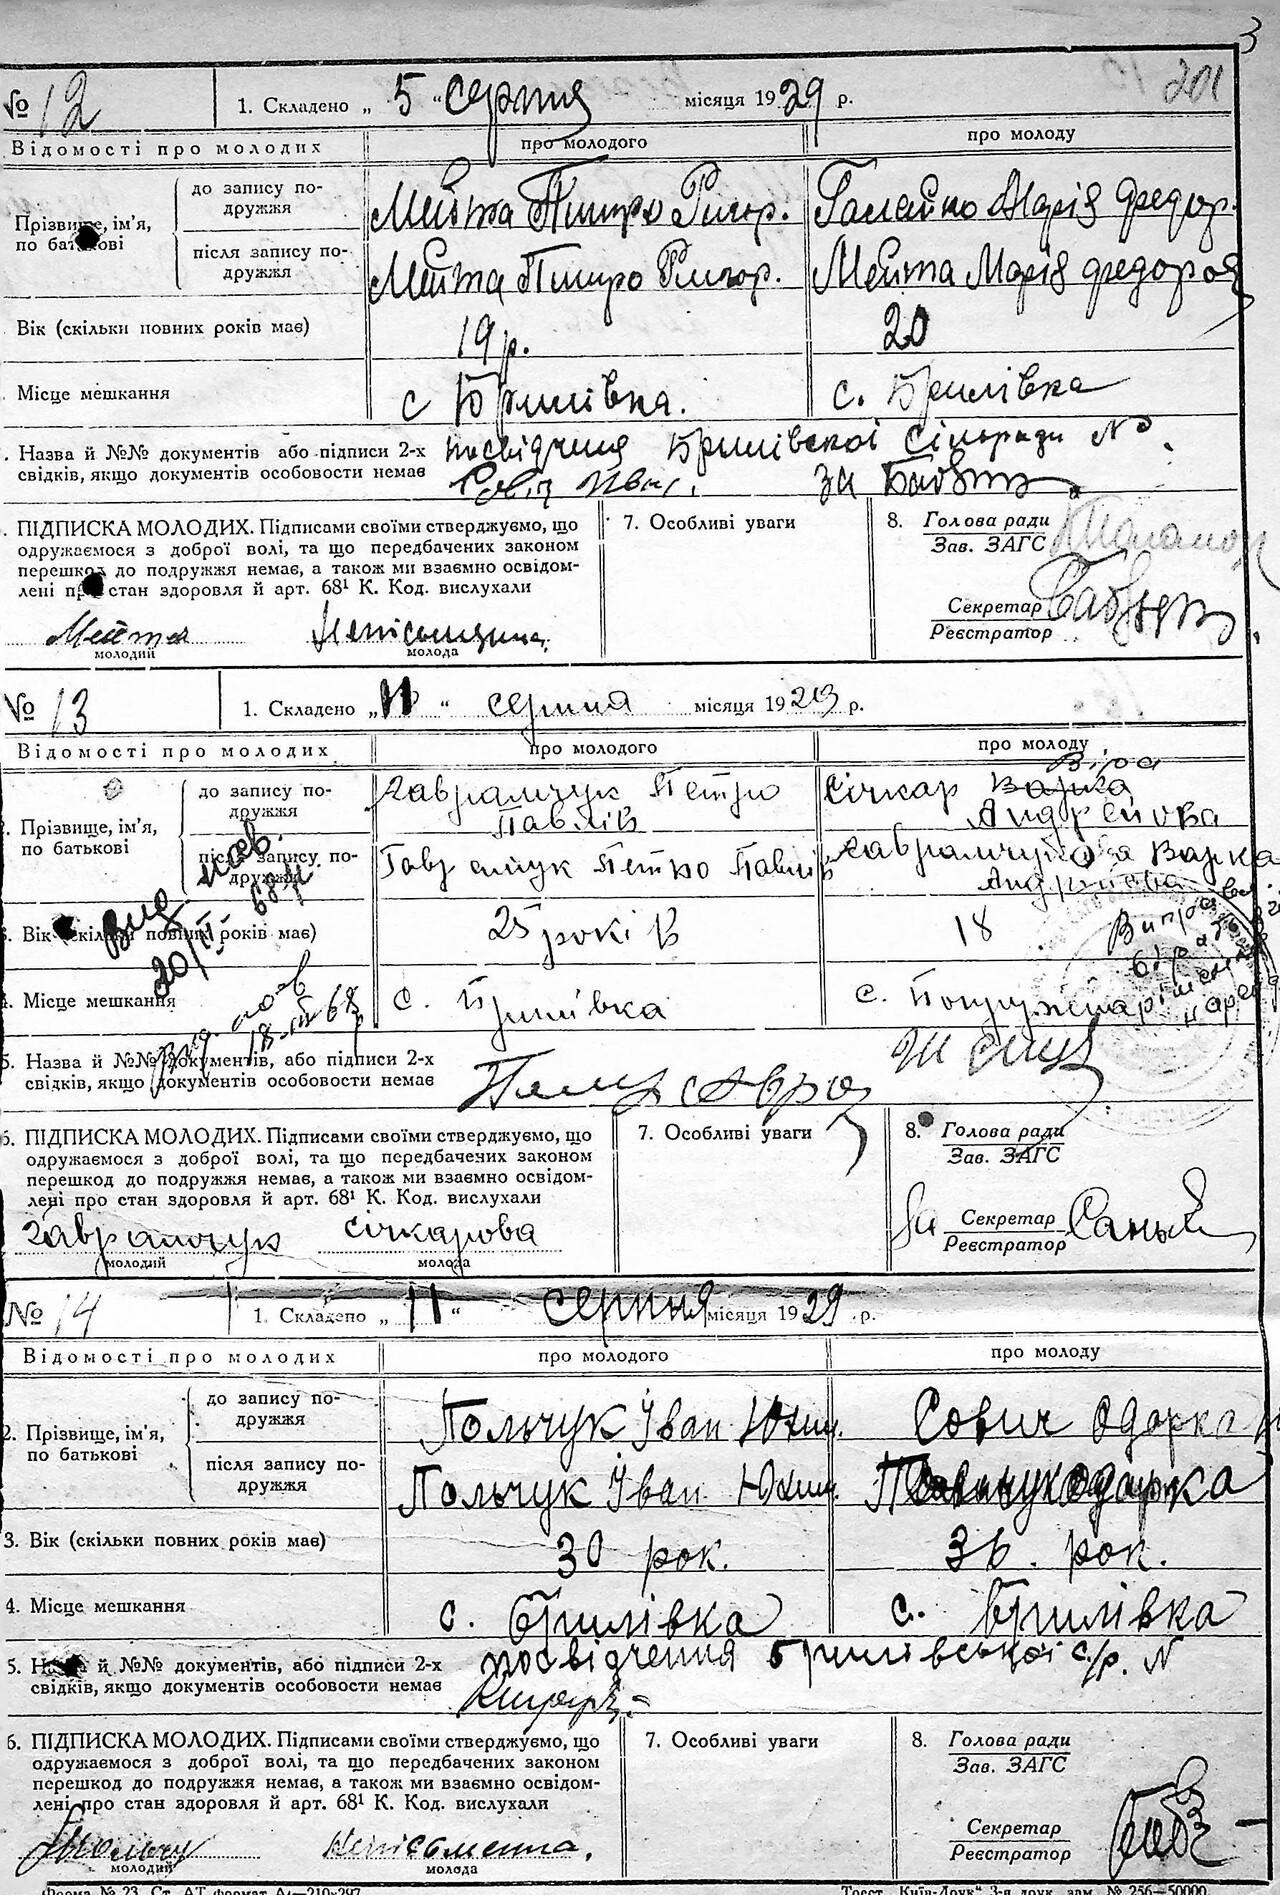 3
201
№ 12 1. Складено „ 5 " серпня місяця 1929 р.
Відомості про молодих про молодого про молоду
Прізвище, ім'я, по батькові
до запису подружжя Мейта Петро Григор. Галейко Марія Федор.
після запису подружжя Мейта Петро Григор. Мейта Марія Федоров
Вік (скільки повних років має) 19 р. 20
Місце мешкання с Брилівка. с. Брилівка
Назва й №№ документів або підписи 2-х посвідчення Брилівскої сільради №
свідків, якщо документів особовости немає за
ПІДПИСКА МОЛОДИХ. Підписами своїми стверджуємо, що
одружаємося з доброї волі, та що передбачених законом
перешкод до подружжя немає, а також ми взаємно освідом-
лені про стан здоров'я й арт. 68¹ К. Код. вислухали
7. Особливі уваги
8. Голова ради
Зав. ЗАГС
Секретар
Реєстратор
Мейта
молодий молода
№ 13 1. Складено „11" серпня місяця 1929 р.
Відомості про молодих про молодого про молоду
Віра
Прізвище, ім'я, по батькові
до запису подружжя Гаврамчук Петро Січкар Варка
Павлів Андрейова
після запису подружжя Гаврамчук Петро Павлів Гаврамчукова Варка
Андрійова
Вид. пов.
20/II- 68 р.
3. Вік (скільки повних років має) 25 років 18
4. Місце мешкання с. Брилівка с.
18-III 68
5. Назва й №№ документів, або підписи 2-х
свідків, якщо документів особовости немає
6. ПІДПИСКА МОЛОДИХ. Підписами своїми стверджуємо, що
одружаємося з доброї волі, та що передбачених законом
перешкод до подружжя немає, а також ми взаємно освідом-
лені про стан здоров'я й арт. 68¹ К. Код. вислухали
7. Особливі уваги
8. Голова ради
Зав. ЗАГС
За Секретар
Реєстратор
Гаврамчук Січкарова
молодий молода
№ 14 1. Складено „ 11 " серпня місяця 1929 р.
Відомості про молодих про молодого про молоду
2. Прізвище, ім'я, по батькові
до запису подружжя Польчук Іван Юхим. Сович Одарка
після запису подружжя Польчук Іван Юхим. Польчук Одарка
3. Вік (скільки повних років має) 30 рок. 36. рок.
4. Місце мешкання с. Брилівка с. Брилівка
5. Назва й №№ документів, або підписи 2-х посвідчення Брилівської с/р. N
свідків, якщо документів особовости немає
6. ПІДПИСКА МОЛОДИХ. Підписами своїми стверджуємо, що
одружаємося з доброї волі, та що передбачених законом
перешкод до подружжя немає, а також ми взаємно освідом-
лені про стан здоров'я й арт. 68¹ К. Код. вислухали
7. Особливі уваги
8. Голова ради
Зав. ЗАГС
Секретар
Реєстратор
Непісьменна.
молодий молода
Форма № 23. Ст. АТ формат А₄—210×297 Трест „Київ-Друк" 3-я друк. зам. № 256—50000.